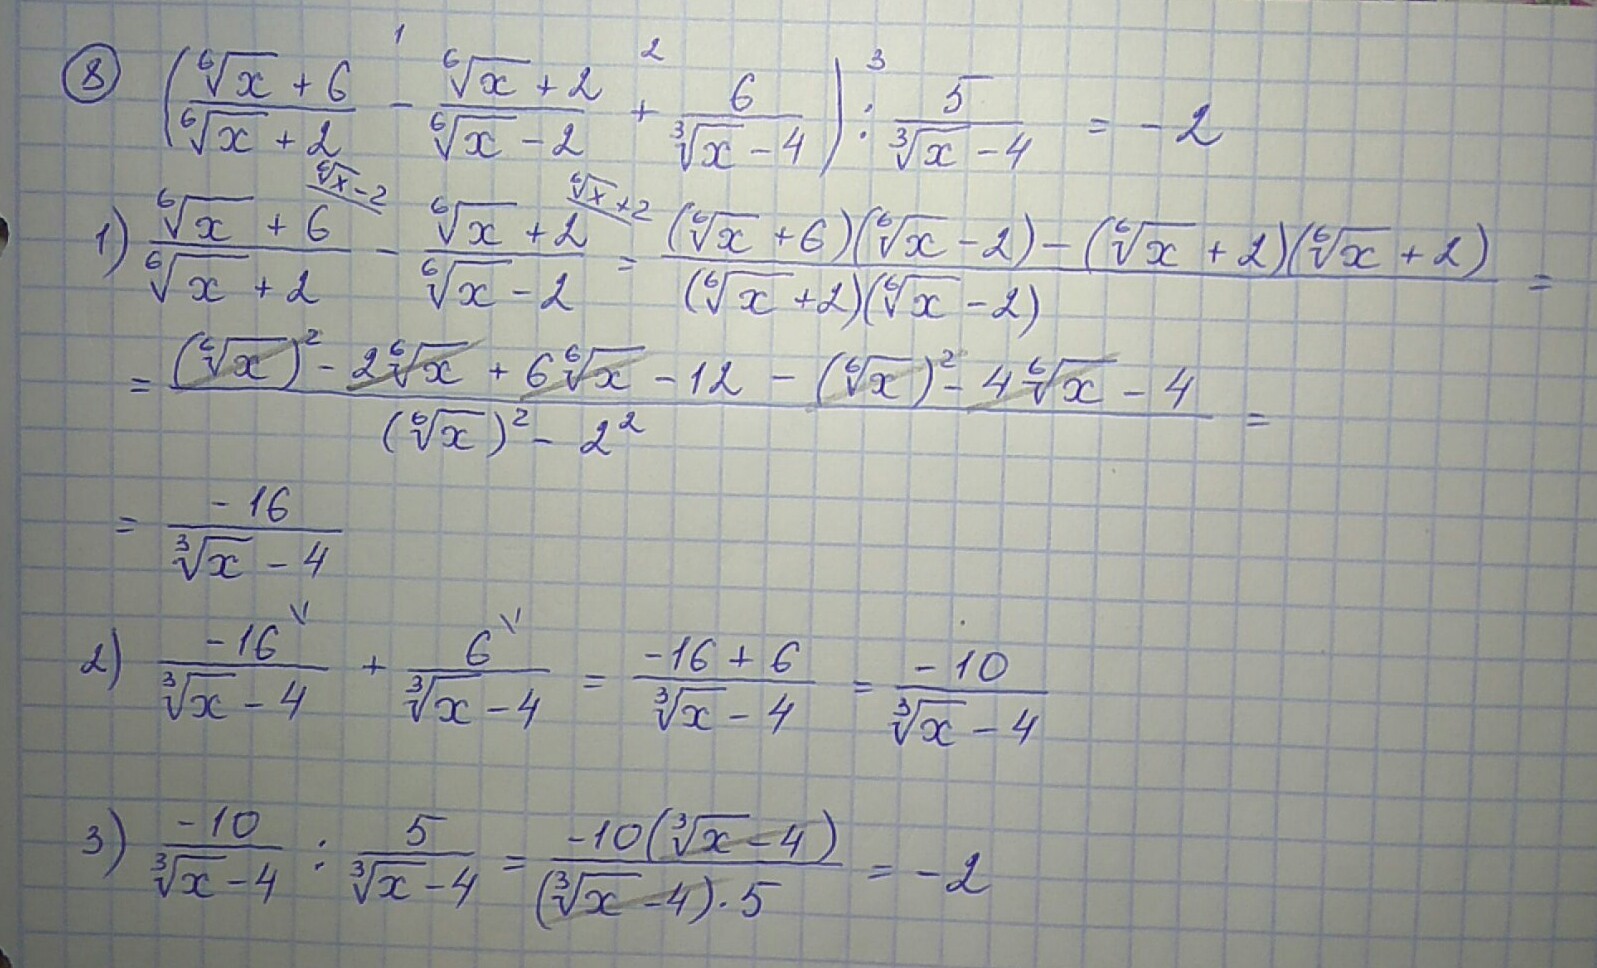 ⑧ (（⁶√x + 6)/(⁶√x + 2) -¹ (⁶√x + 2)/(⁶√x - 2) +² 6/(³√x - 4)) :³ 5/(³√x - 4) = -2
1) (⁶√x + 6)/(⁶√x + 2) \⁶√x - 2 - (⁶√x + 2)/(⁶√x - 2) \⁶√x + 2 = ((⁶√x + 6)(⁶√x - 2) - (⁶√x + 2)(⁶√x + 2))/((⁶√x + 2)(⁶√x - 2)) =
= ((⁶√x)² - 2⁶√x + 6⁶√x - 12 - (⁶√x)² - 4⁶√x - 4)/((⁶√x)² - 2²) =
= -16/(³√x - 4)
2) -16\/(³√x - 4) + 6\/(³√x - 4) = (-16 + 6)/(³√x - 4) = -10/(³√x - 4)
3) -10/(³√x - 4) : 5/(³√x - 4) = -10(³√x - 4)/((³√x - 4)·5) = -2